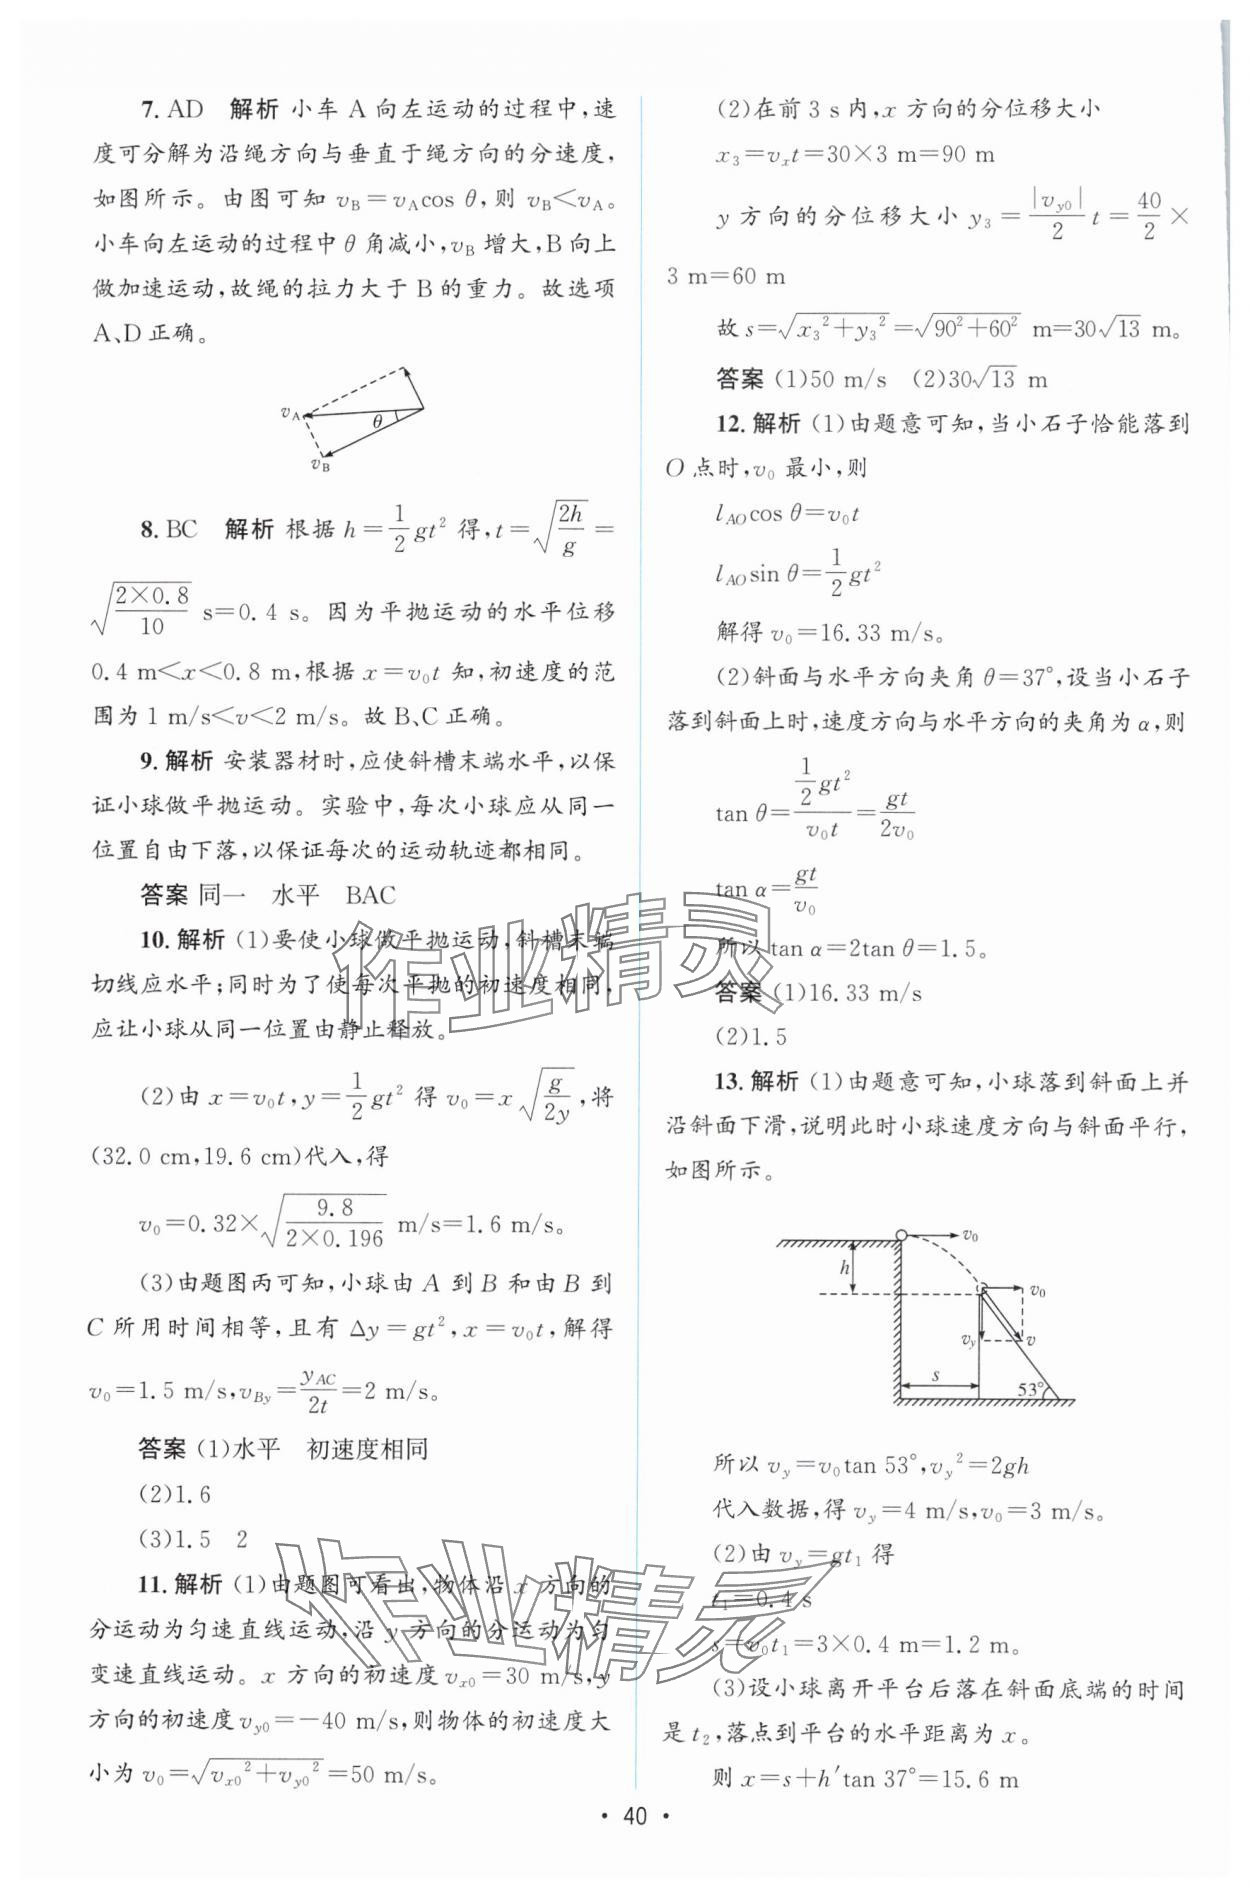 7. AD　解析 小车 A 向左运动的过程中,速
度可分解为沿绳方向与垂直于绳方向的分速度,
如图所示。由图可知 v_B=v_A cos θ,则 v_B<v_A。
小车向左运动的过程中 θ 角减小,v_B 增大,B 向上
做加速运动,故绳的拉力大于 B 的重力。故选项
A、D 正确。
v_A
θ
v_B
8. BC　解析 根据 h=\frac{1}{2}gt^2 得,t=\sqrt{\frac{2h}{g}}=
\sqrt{\frac{2×0.8}{10}} s=0.4 s。因为平抛运动的水平位移
0.4 m<x<0.8 m,根据 x=v_0t 知,初速度的范
围为 1 m/s<v<2 m/s。故 B、C 正确。
9. 解析 安装器材时,应使斜槽末端水平,以保
证小球做平抛运动。实验中,每次小球应从同一
位置自由下落,以保证每次的运动轨迹都相同。
答案 同一　水平　BAC
10. 解析 (1)要使小球做平抛运动,斜槽末端
切线应水平;同时为了使每次平抛的初速度相同,
应让小球从同一位置由静止释放。
(2)由 x=v_0t,y=\frac{1}{2}gt^2 得 v_0=x\sqrt{\frac{g}{2y}},将
(32.0 cm,19.6 cm)代入,得
v_0=0.32×\sqrt{\frac{9.8}{2×0.196}} m/s=1.6 m/s。
(3)由题图丙可知,小球由 A 到 B 和由 B 到
C 所用时间相等,且有 Δy=gt^2,x=v_0t,解得
v_0=1.5 m/s,v_{By}=\frac{y_{AC}}{2t}=2 m/s。
答案 (1)水平　初速度相同
(2)1.6
(3)1.5　2
11. 解析 (1)由题图可看出,物体沿 x 方向的
分运动为匀速直线运动,沿 y 方向的分运动为匀
变速直线运动。x 方向的初速度 v_{x0}=30 m/s,y
方向的初速度 v_{y0}=-40 m/s,则物体的初速度大
小为 v_0=\sqrt{v_{x0}^2+v_{y0}^2}=50 m/s。
(2)在前 3 s 内,x 方向的分位移大小
x_3=v_xt=30×3 m=90 m
y 方向的分位移大小 y_3=\frac{|v_{y0}|}{2}t=\frac{40}{2}×
3 m=60 m
故 s=\sqrt{x_3^2+y_3^2}=\sqrt{90^2+60^2} m=30\sqrt{13} m。
答案 (1)50 m/s　(2)30\sqrt{13} m
12. 解析 (1)由题意可知,当小石子恰能落到
O 点时,v_0 最小,则
l_{AO}cos θ=v_0t
l_{AO}sin θ=\frac{1}{2}gt^2
解得 v_0=16.33 m/s。
(2)斜面与水平方向夹角 θ=37°,设当小石子
落到斜面上时,速度方向与水平方向的夹角为 α,则
tan θ=\frac{\frac{1}{2}gt^2}{v_0t}=\frac{gt}{2v_0}
tan α=\frac{gt}{v_0}
所以 tan α=2tan θ=1.5。
答案 (1)16.33 m/s
(2)1.5
13. 解析 (1)由题意可知,小球落到斜面上并
沿斜面下滑,说明此时小球速度方向与斜面平行,
如图所示。
v_0
h
v_0
v_y
v
s
53°
所以 v_y=v_0tan 53°,v_y^2=2gh
代入数据,得 v_y=4 m/s,v_0=3 m/s。
(2)由 v_y=gt_1 得
t_1=0.4 s
s=v_0t_1=3×0.4 m=1.2 m。
(3)设小球离开平台后落在斜面底端的时间
是 t_2,落点到平台的水平距离为 x。
则 x=s+h′tan 37°=15.6 m
• 40 •
作业精灵
作业精灵